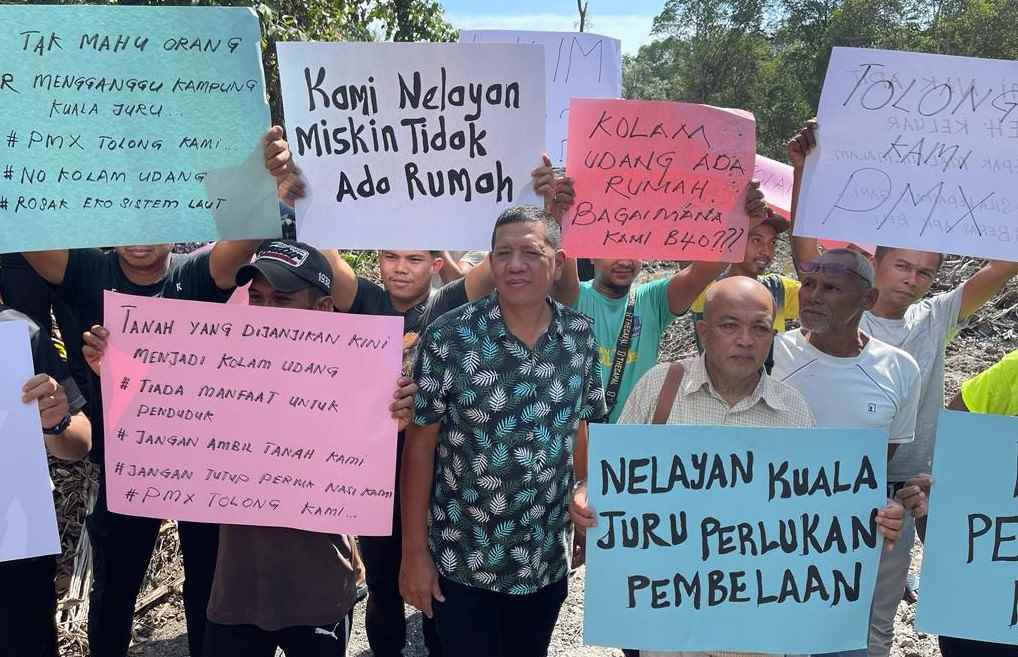 TAK MAHU ORANG
MENGGANGGU KAMPUNG
KUALA JURU...
# PMX TOLONG KAMI...
# NO KOLAM UDANG
# ROSAK EKO SISTEM LAUT
Kami Nelayan
Miskin Tidak
Ada Rumah
KOLAM
UDANG ADA
RUMAH.
BAGAIMANA
KAMI B40???
TOLONG
KAMI
PMX
TANAH YANG DIJANJIKAN KINI
MENJADI KOLAM UDANG
# TIADA MANFAAT UNTUK
PENDUDUK
# JANGAN AMBIL TANAH KAMI
# JANGAN TUTUP PERIUK NASI KAMI
# PMX TOLONG KAMI...
NELAYAN KUALA
JURU PERLUKAN
PEMBELAAN